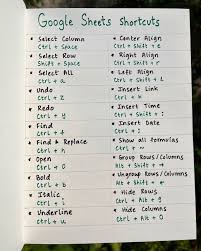 Google Sheets Shortcuts
* Select Column
Ctrl + Space
* Select Row
Shift + Space
* Select All
Ctrl + a
* Undo
Ctrl + z
* Redo
Ctrl + y
* Find
Ctrl + f
* Find & Replace
Ctrl + h
* Open
Ctrl + o
* Bold
Ctrl + b
* Italic
Ctrl + i
* Underline
Ctrl + u
* Center Align
Ctrl + Shift + e
* Right Align
Ctrl + Shift + r
* Left Align
Ctrl + Shift + l
* Insert Link
Ctrl + k
* Insert Time
Ctrl + Shift + ;
* Insert Date
Ctrl + ;
* Show all formulas
Ctrl + ~
* Group Rows/Columns
Alt + Shift + →
* Ungroup Rows/Columns
Alt + Shift + ←
* Hide Rows
Ctrl + Alt + 9
* Hide Columns
Ctrl + Alt + 0